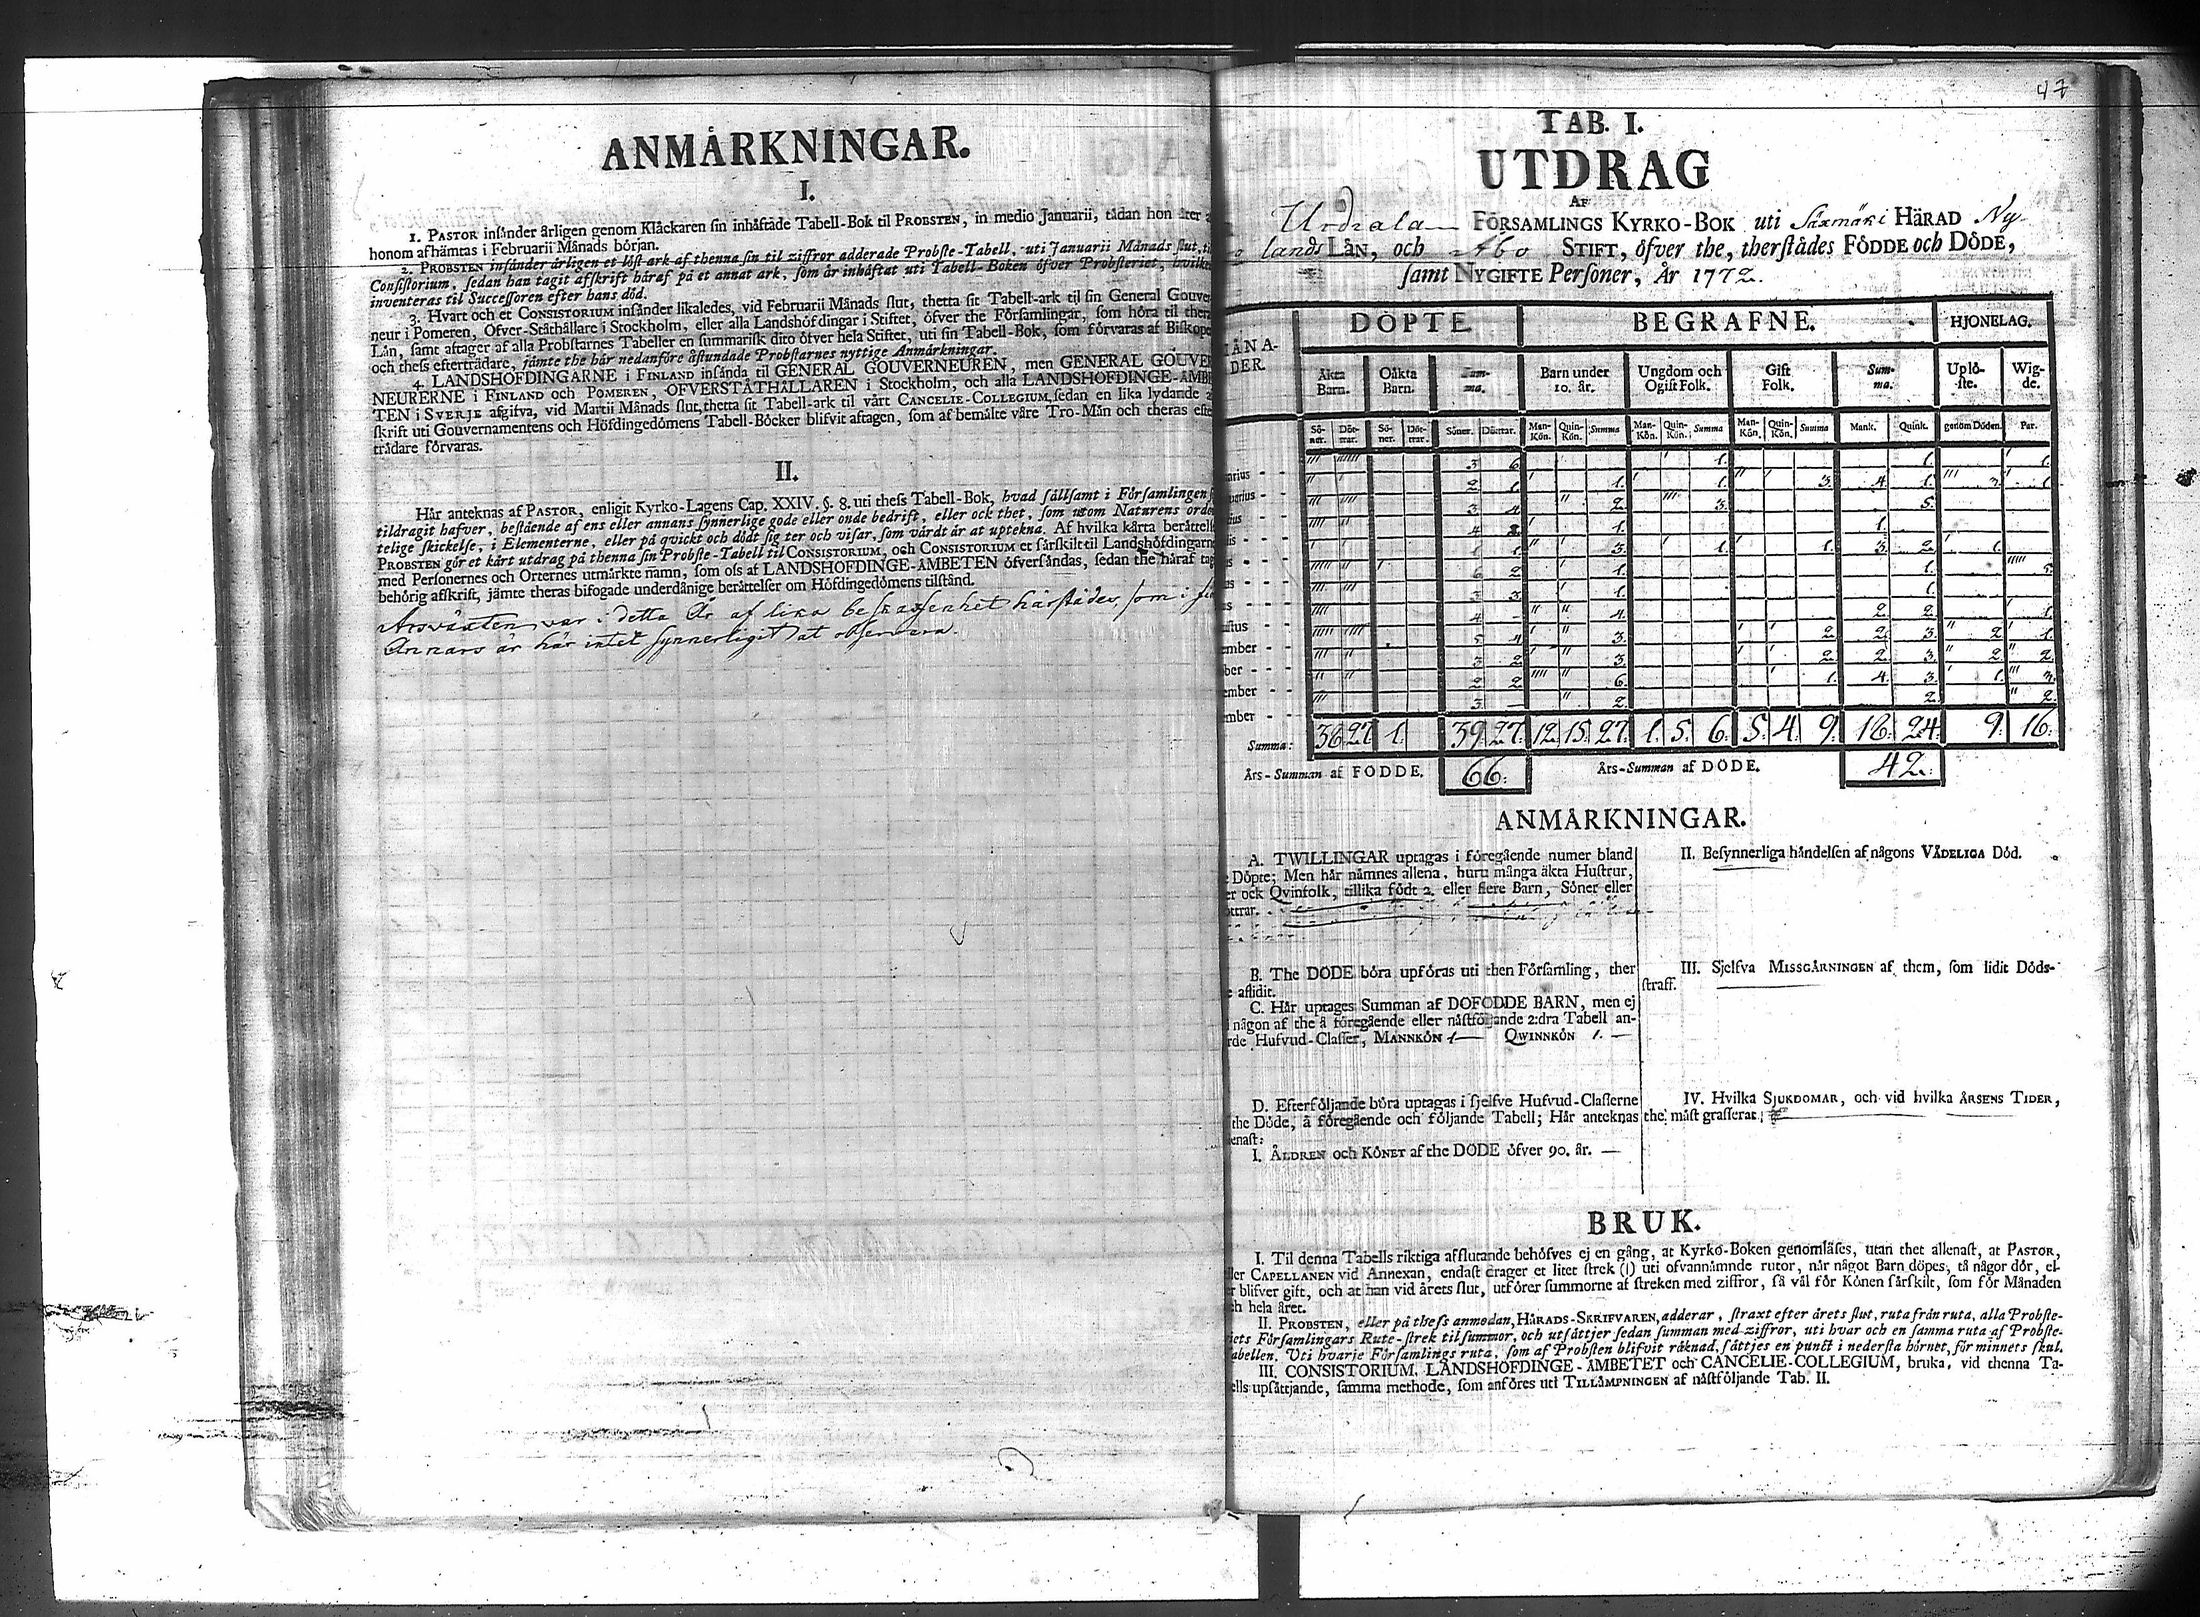 ANMÅRKNINGAR.
I.
1. PASTOR insånder årligen genom Klåckaren sin inhåftåde Tabell-Bok til PROBSTEN, in medio Januarii, tådan hon åter
honom afhåmtas i Februarii Månads början.
2. PROBSTEN insånder årligen et löst ark af thenna sin til ziffror adderade Probste-Tabell, uti Januarii Månads slut, til
Consistorium, sedan han tagit afskrift håraf på et annat ark, som år inhåftat uti Tabell-Boken öfver Probsteriet, hvilken
inventeras til Successoren efter hans död.
3. Hvart och et CONSISTORIUM insånder likaledes, vid Februarii Månads slut, thetta sit Tabell-ark til sin General Gouver-
neur i Pomeren, Öfver-Ståthållare i Stockholm, eller alla Landshöfdingar i Stiftet, öfver the Församlingar, som höra til
Lån, samt aftager af alla Probstarnes Tabeller en summarisk dito öfver hela Stiftet, uti sin Tabell-Bok, som förvaras af
och thess eftertrådare, jåmte the hår nedanföre åstundade Probstarnes nyttige Anmårkningar.
4. LANDSHÖFDINGARNE i FINLAND insånda til GENERAL GOUVERNEUREN, men GENERAL GOUVER
NEURERNE i FINLAND och POMEREN, ÖFVERSTÅTHÅLLAREN i Stockholm, och alla LANDSHÖFDINGE-ÅMBE
TEN i SVERJE afgifva, vid Martii Månads slut, thetta sit Tabell-ark til vårt CANCELIE-COLLEGIUM, sedan en lika lydande
skrift uti Gouvernamentens och Höfdingedömens Tabell-Böcker blifvit aftagen, som af bemålte våre Tro-Mån och theras efter
trådare förvaras.
II.
Hår anteknas af PASTOR, enligit Kyrko-Lagens Cap. XXIV. §. 8. uti thess Tabell-Bok, hvad sållsamt i Församlingen
tildragit hafver, bestående af ens eller annans synnerlige gode eller onde bedrift, eller ock thet, som utom Naturens orde
telige skickelse, i Elementerne, eller på qvickt och dödt sig ter och visar, som vårdt år at uptekna. Af hvilka kårta beråttelser
PROBSTEN gör et kårt utdrag på thenna sin Probste-Tabell til CONSISTORIUM, och CONSISTORIUM et sårskilt til Landshöfdingarne
med Personernes och Orternes utmårkte namn, som oss af LANDSHÖFDINGE-ÅMBETEN öfversåndas, sedan the håraf
behörig afskrift, jåmte theras bifogade underdånige beråttelser om Höfdingedömens tilstånd.
Årsväxten var i detta År af lika beskaffenhet härstädes, som i
Annars är här intet synnerligit at observera.
47
TAB. I.
UTDRAG
AF
Urdiala FÖRSAMLINGS KYRKO-BOK uti Säxmäki HÄRAD Ny-
lands LÅN, och Abo STIFT, öfver the, therstådes FÖDDE och DÖDE,
samt NYGIFTE Personer, År 1772.
DÖPTE. BEGRAFNE. HJONELAG.
Åkta Barn. Oåkta Barn. Summa. Barn under 10. år. Ungdom och Ogift Folk. Gift Folk. Summa. Uplöste. Wigde.
Söner. Döttrar. Söner. Döttrar. Söner. Döttrar. Man-Kön. Quin-Kön. Summa Man-Kön. Quin-Kön. Summa Man-Kön. Quin-Kön. Summa Mank. Quink. genom Döden. Par.
3 6 1. 1. 1.
2 1. 1. 1. 3. 4. 1. 3. 1.
3 4 2. 3. 5.
4 2. 1. 1.
1 1. 3. 1. 1. 3. 2. 1.
6 2 1. 1. 5.
3 3. 1. 1.
4 — 4. 2. 2. 1.
5 4 3. 2. 2. 3. 2. 1.
3 2 3. 2. 2. 3. 2. 2.
2 2 6. 1. 4. 3. 1. 3.
3 — 2. 2. 2.
Summa: 38 27 1. 39 27. 12. 15. 27. 1. 5. 6. 5. 4. 9. 18. 24. 9. 16.
Års-Summan af FÖDDE. 66. Års-Summan af DÖDE. 42.
ANMÅRKNINGAR.
A. TWILLINGAR uptagas i föregående numer bland
Döpte; Men hår nåmnes allena, huru många åkta Hustrur,
er ock Qvinfolk, tillika födt 2. eller flere Barn, Söner eller
ttrar.
B. The DÖDE böra upföras uti then Församling, ther
aflidit.
C. Hår uptages Summan af DÖFÖDDE BARN, men ej
någon af the å föregående eller nåstföljande 2:dra Tabell an-
rde Hufvud-Classer, MANNKÖN 1 — QWINNKÖN 1. —
D. Efterföljande böra uptagas i sjelfve Hufvud-Classerne
the Döde, å föregående och följande Tabell; Hår anteknas
enast:
I. ÅLDREN och KÖNET af the DÖDE öfver 90. år. —
II. Besynnerliga håndelsen af någons VÅDELIGA Död.
III. Sjelfva MISSGÅRNINGEN af them, som lidit Döds-
straff.
IV. Hvilka SJUKDOMAR, och vid hvilka ÅRSENS TIDER,
the måst grasserat;
BRUK.
I. Til denna Tabells riktiga afslutande behöfves ej en gång, at Kyrko-Boken genomläses, utan thet allenast, at PASTOR,
ller CAPELLANEN vid Annexan, endast drager et litet strek (I) uti ofvannåmnde rutor, når något Barn döpes, tå någor dör, el-
r blifver gift, och at han vid årets slut, utförer summorne af streken med ziffror, så vål för Könen sårskilt, som för Månaden
ch hela året.
II. PROBSTEN, eller på thess anmodan, HÅRADS-SKRIFVAREN, adderar, straxt efter årets slut, ruta från ruta, alla Probste-
iets Församlingars Rute-strek til summor, och utsåttjer sedan summan med ziffror, uti hvar och en samma ruta af Probste-
abellen. Uti hvarje Församlings ruta, som af Probsten blifvit råknad, såttjes en punct i nedersta hörnet, för minnets skul.
III. CONSISTORIUM, LANDSHÖFDINGE-ÅMBETET och CANCELIE-COLLEGIUM, bruka, vid thenna Ta-
ells upsåttjande, samma methode, som anföres uti TILLÅMPNINGEN af nåstföljande Tab. II.